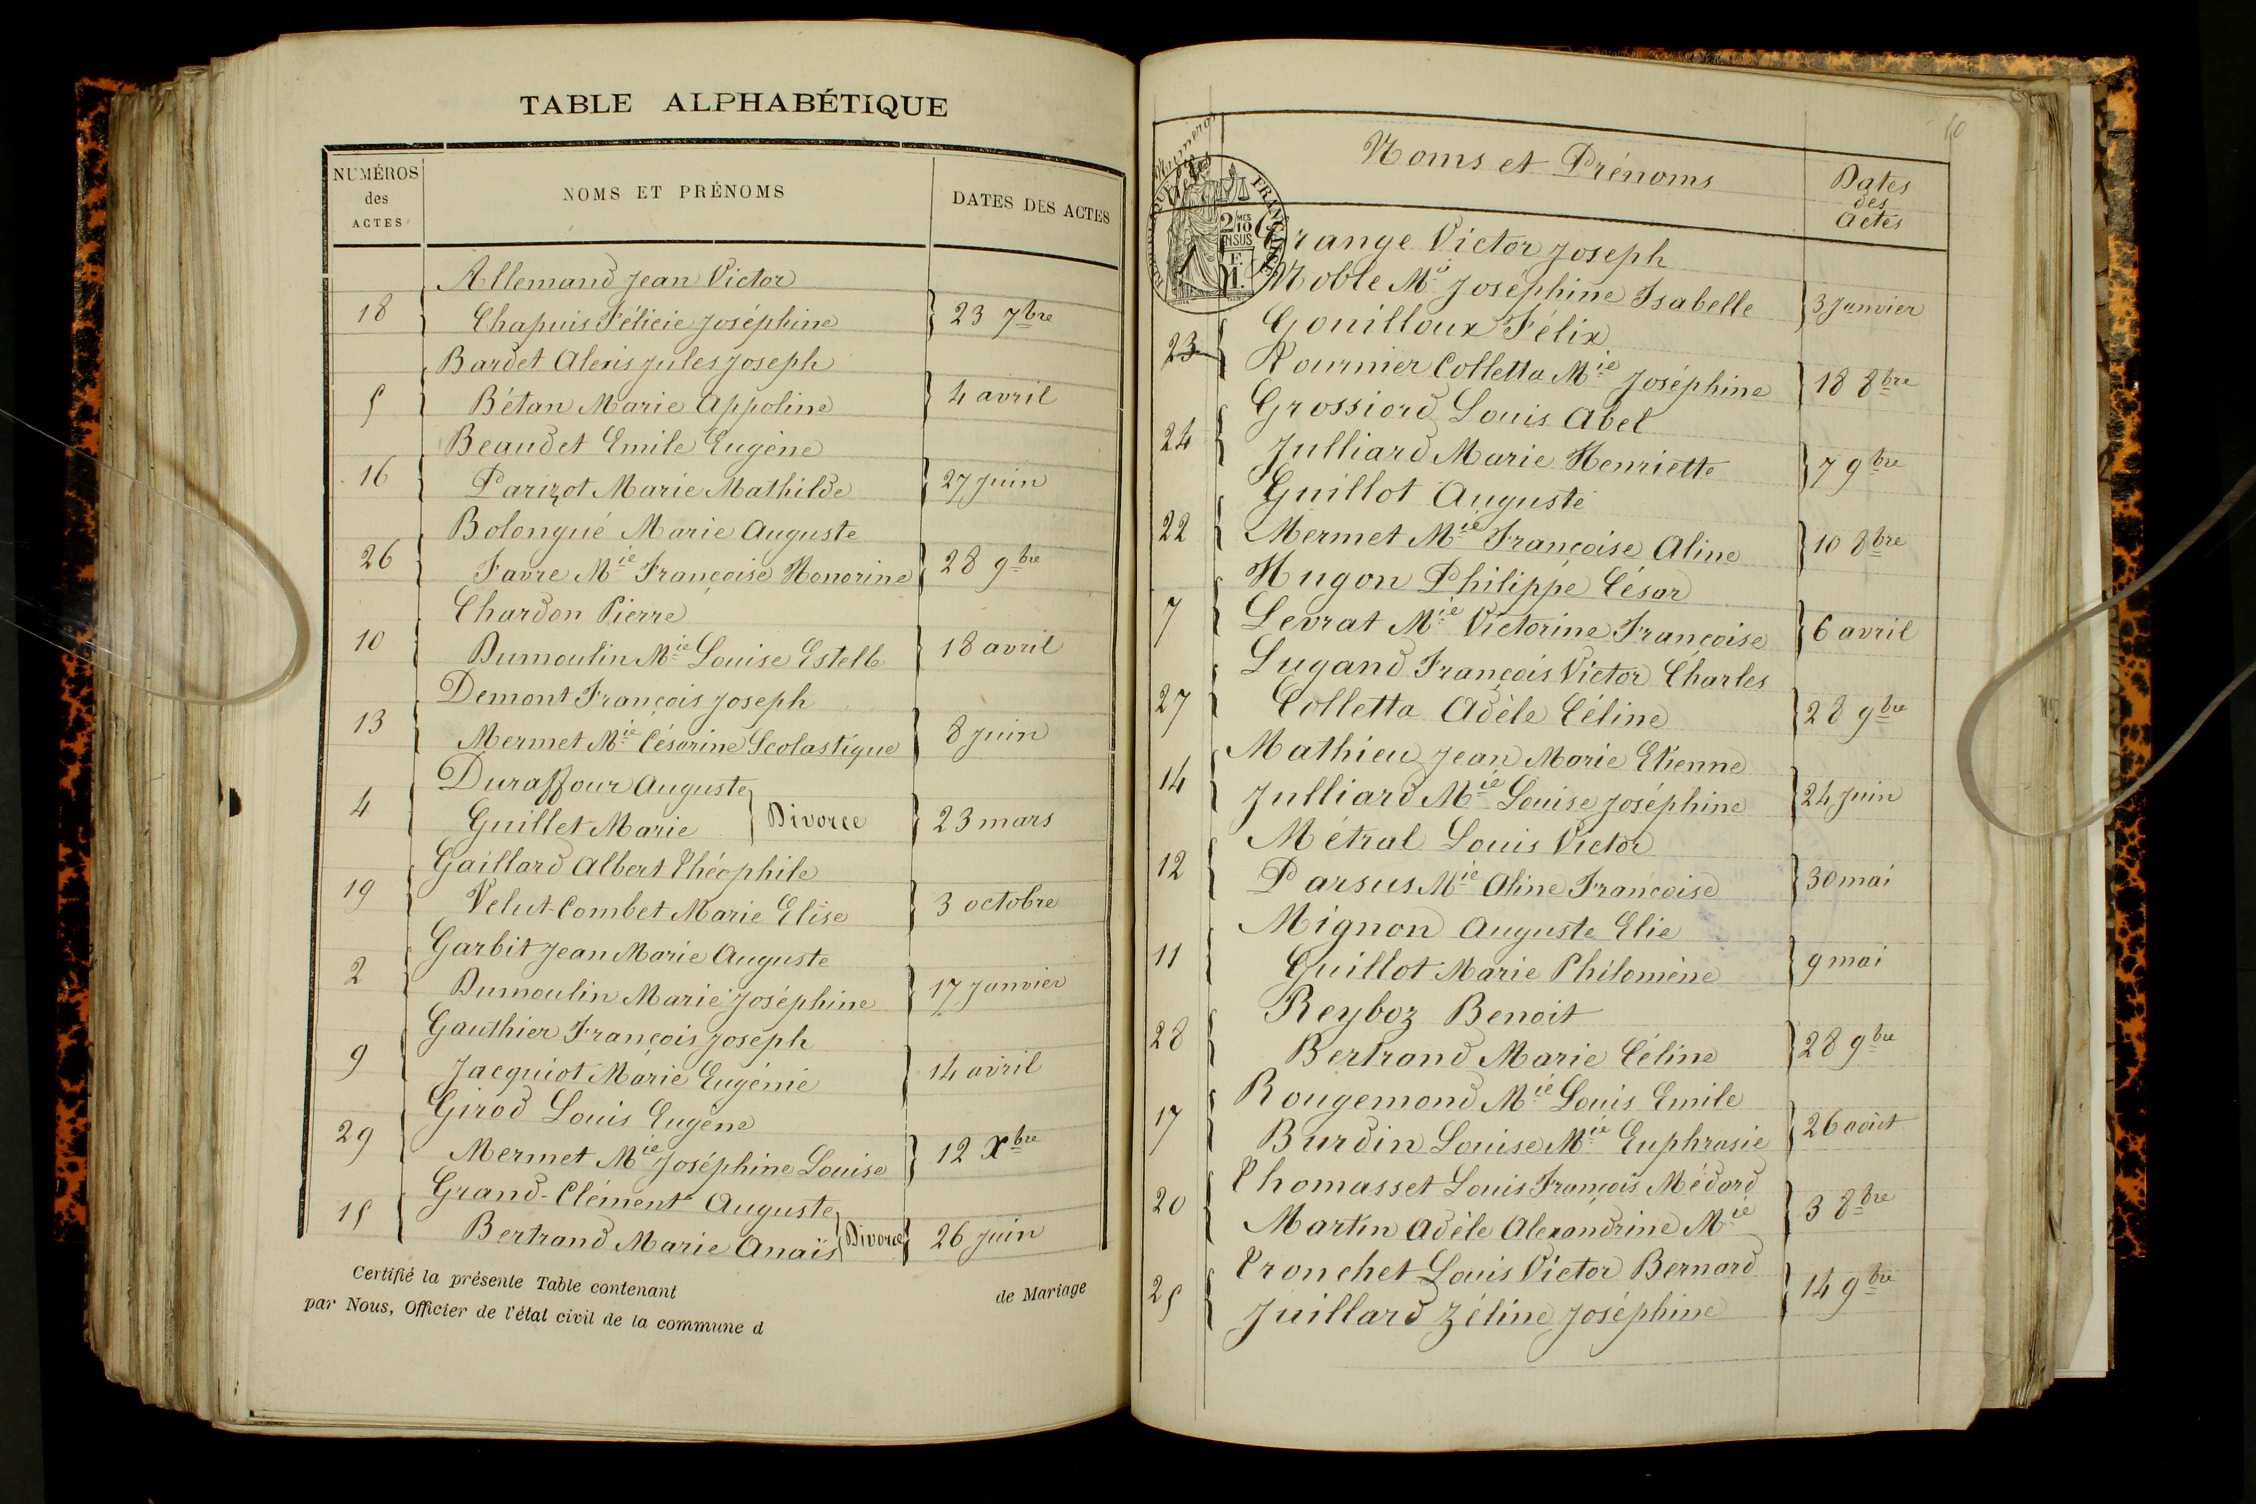 TABLE ALPHABÉTIQUE
NUMÉROS des ACTES NOMS ET PRÉNOMS DATES DES ACTES
Allemand Jean Victor
18 Chapuis Félicie Joséphine 23 7bre
Bardet Alexis Jules Joseph
5 Bétan Marie Appoline 4 avril
Beaudet Emile Eugène
16 Parizot Marie Mathilde 27 juin
Bolongué Marie Auguste
26 Favre Mie Françoise Honorine 28 9bre
Chardon Pierre
10 Dumoulin Mie Louise Estelle 18 avril
Demont François Joseph
13 Mermet Mie Césarine Scolastique 8 juin
Duraffour Auguste
4 Guillet Marie Divorce 23 mars
Gaillard Albert Théophile
19 Velut-Combet Marie Elise 3 octobre
Garbit Jean Marie Auguste
2 Dumoulin Marie Joséphine 17 janvier
Gauthier François Joseph
9 Jacquiot Marie Eugénie 14 avril
Girod Louis Eugène
29 Mermet Mie Joséphine Louise 12 Xbre
Grand-Clément Auguste
15 Bertrand Marie Anaïs Divorce 26 juin
Certifié la présente Table contenant de Mariage
par Nous, Officier de l'état civil de la commune d
10
Numéros des Actes Noms et Prénoms Dates des Actes
FRANÇAISE
2 MES 10 EN SUS
Grange Victor Joseph
1 Noble Mie Joséphine Isabelle 3 Janvier
Gouilloux Félix
23 Fournier Colletta Mie Joséphine 18 8bre
Grossiord Louis Abel
24 Julliard Marie Henriette 7 9bre
Guillot Auguste
22 Mermet Mie Françoise Aline 10 8bre
Hugon Philippe César
7 Levrat Mie Victorine Françoise 6 avril
Lugand François Victor Charles
27 Colletta Adèle Céline 28 9bre
Mathieu Jean Marie Etienne
14 Julliard Mie Louise Joséphine 24 juin
Métral Louis Victor
12 Parsus Mie Aline Françoise 30 mai
Mignon Auguste Elie
11 Guillot Marie Philomène 9 mai
Reyboz Benoit
28 Bertrand Marie Céline 28 9bre
Rougemond Mie Louis Emile
17 Burdin Louise Mie Euphrasie 26 août
Thomasset Louis François Médard
20 Martin Adèle Alexandrine Mie 3 8bre
Tronchet Louis Victor Bernard
25 Juillard Zéline Joséphine 14 9bre